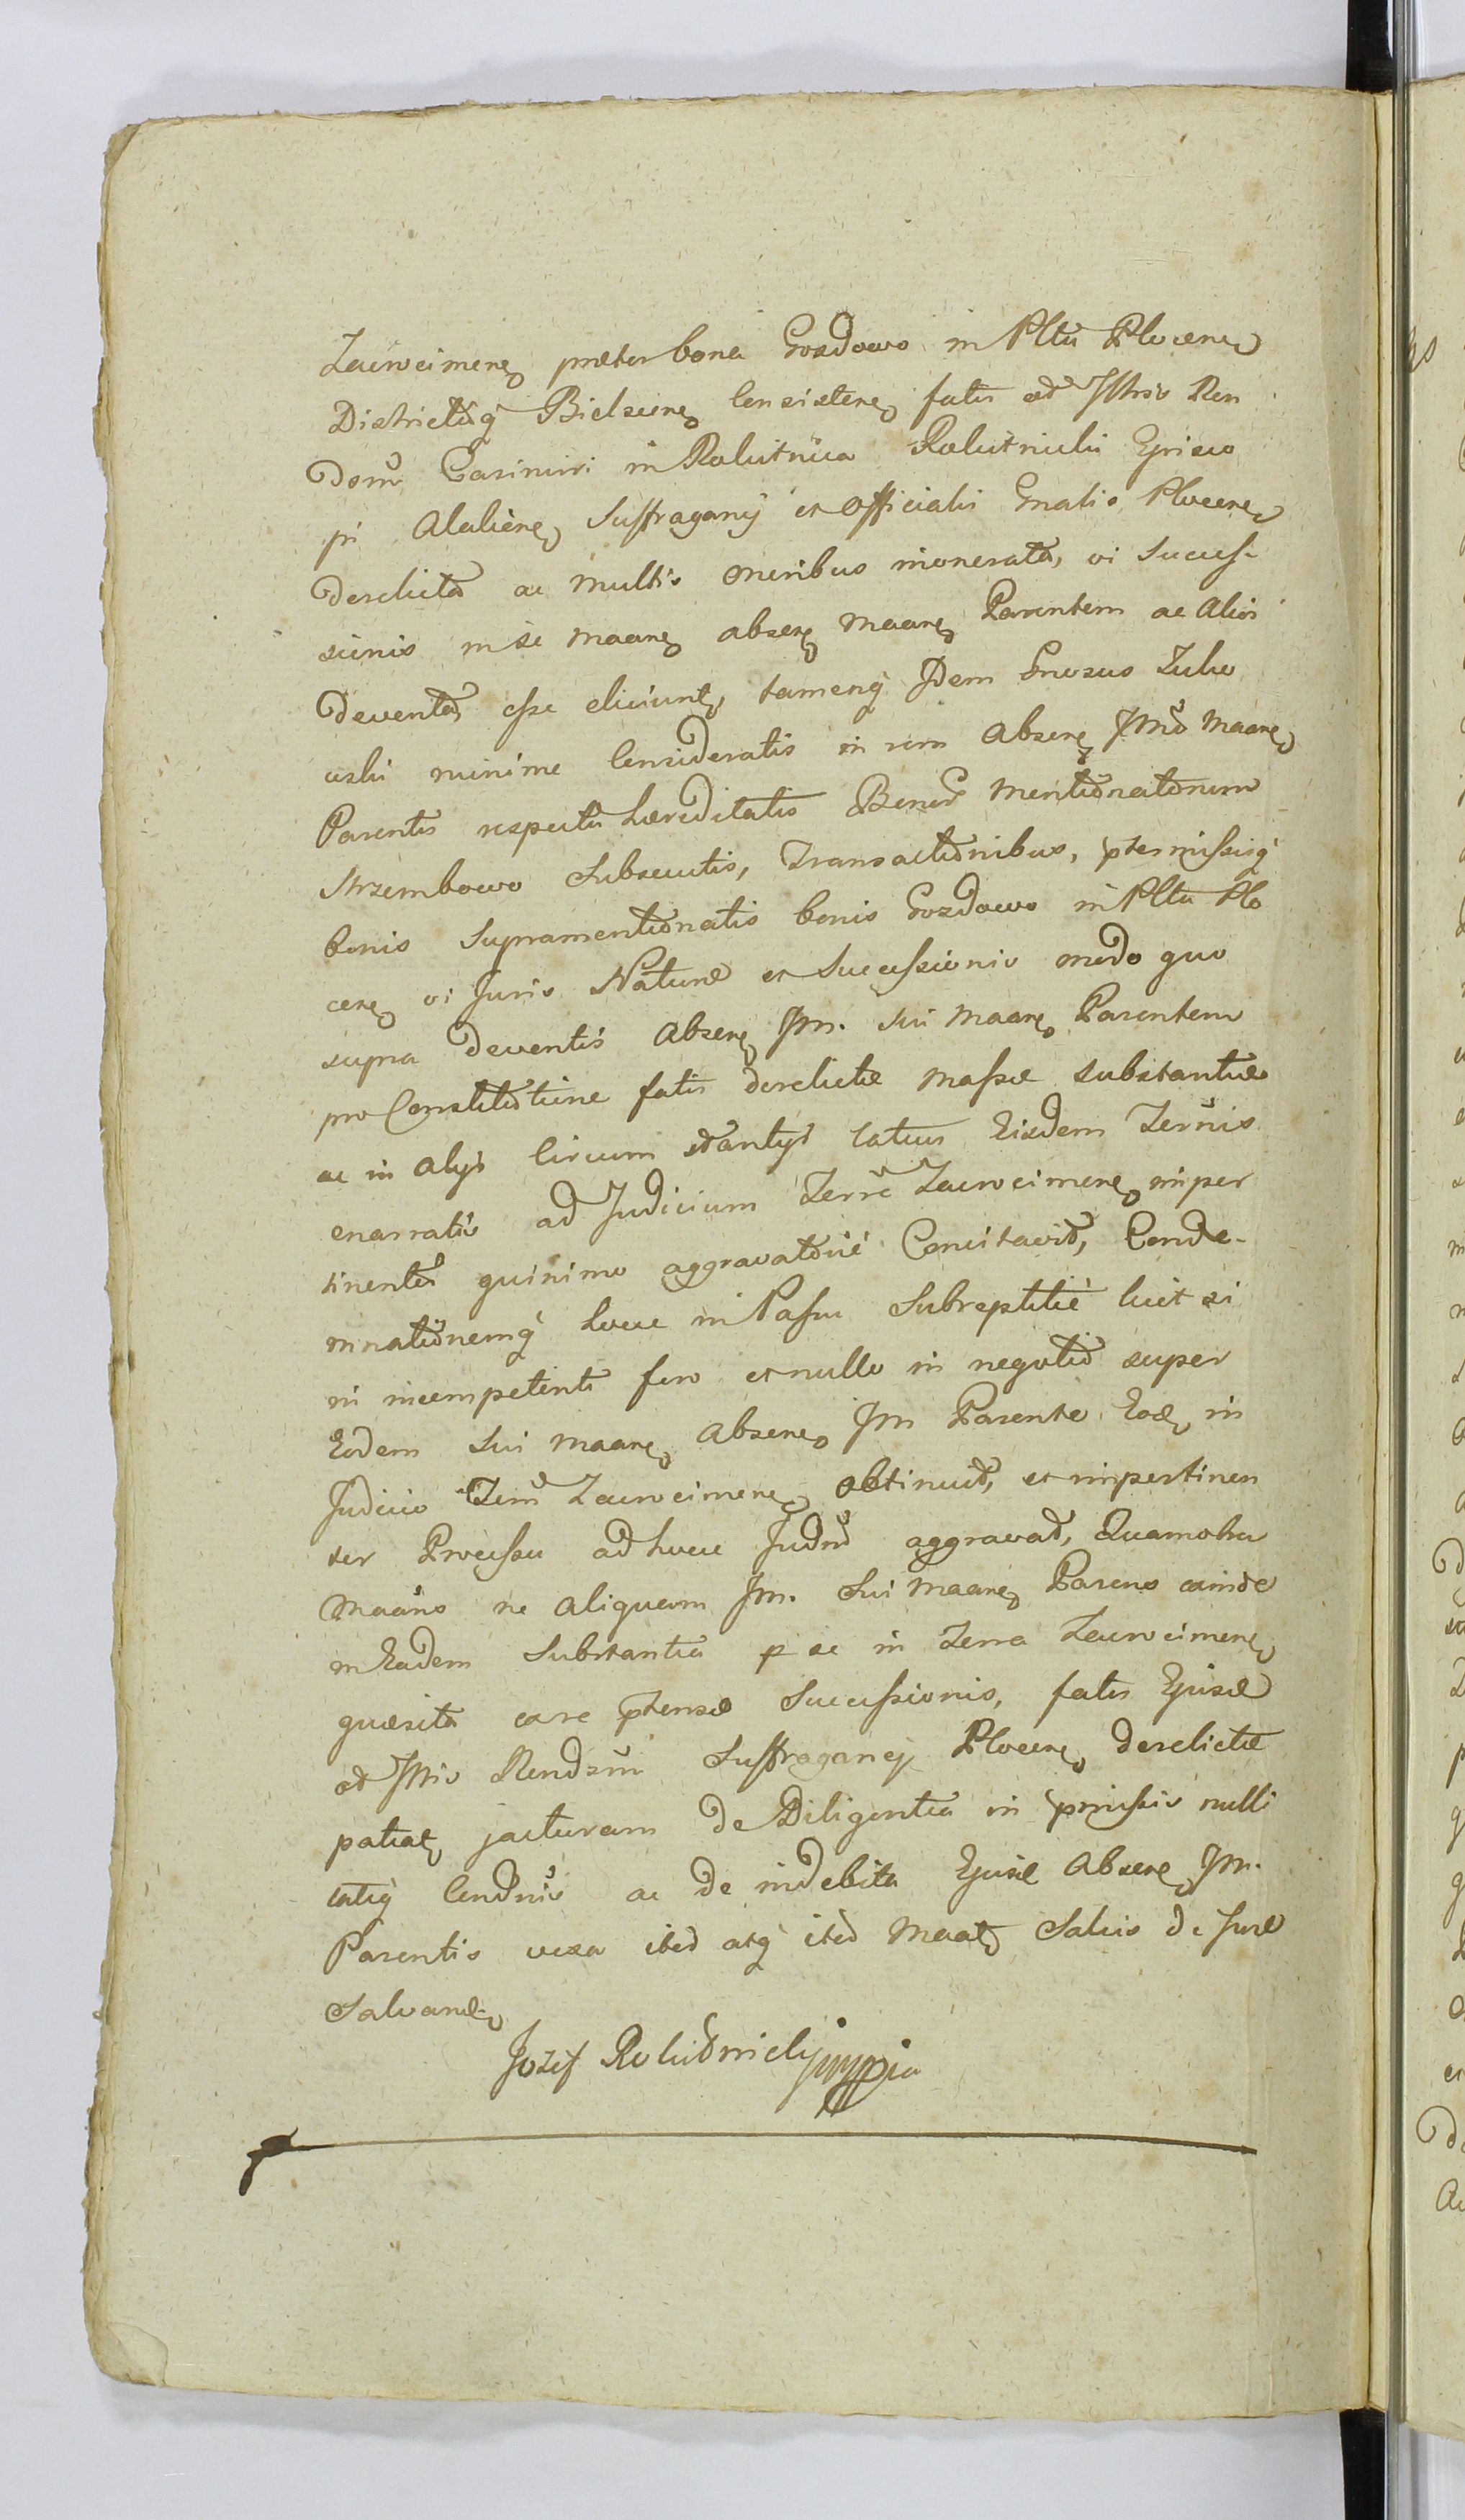 Zawcimen. præter bona Gozdowo in Pltu Plocen.
Districtuq. Bielscen. Consisten. fatis ad Illtris Ren
dom. Casimiri in Rokitnica Rokitnicki Episco
pi Alalien. Suffraganij et Officialis Gnalis Plocen.
derelicta ac multis oneribus inonerata, vi succes-
sionis in se maan. absen. maan. Parentem ac Alios
deventa esse eliciunt, tamenq. Idem Gnosus Zulw
eski minime Consideratis in rem Absen. Im. maan.
Parentis respectu hæreditatis Bonor. mentionatorum
Strzembowo Subsecutis, Transactionibus, ptermissisq.
bonis supramentionatis bonis Gozdowo in Pltu Plo
cen. vi Juris Naturæ et Successionis modo quo
supra deventis Absen. Im. sui maan. Parentem
pro Constitutione fatis derelictæ massæ substantiæ
ac in alys Circum stantys latius Eisdem Ternis
enarratis ad Judicium Terre Zawcimen. imper
tinenter quinimo aggravatorie Concitavit, Conde-
mnationemq. hocce in Passu Subreptitie licet si
in incompetenti foro et nullo in negotio super
Eodem sui maan. Absen. Im Parente Eoq. in
Judicio Terr. Zawcimen. obtinuit, et impertinen
ter Processu adhucce Judm. aggravat, Quamobr
maans ne aliquam Im. Sui maan. Parens exinde
in Eadem Substantia p se in Terra Zawcimen.
quæsita care ptensæ Successionis, fatis Episcæ
ad Illtris Rendsmi Suffraganej Plocen. derelictæ
patiat. jacturam de Diligentia in pmissis nulli
tatiq. Condnis ac de indebita Ejusd. Absen. Im.
Parentis vexa itd. atq. itd. Maat. Salvis de Jure
Salvand.
Jozef Rokitnicki mppia